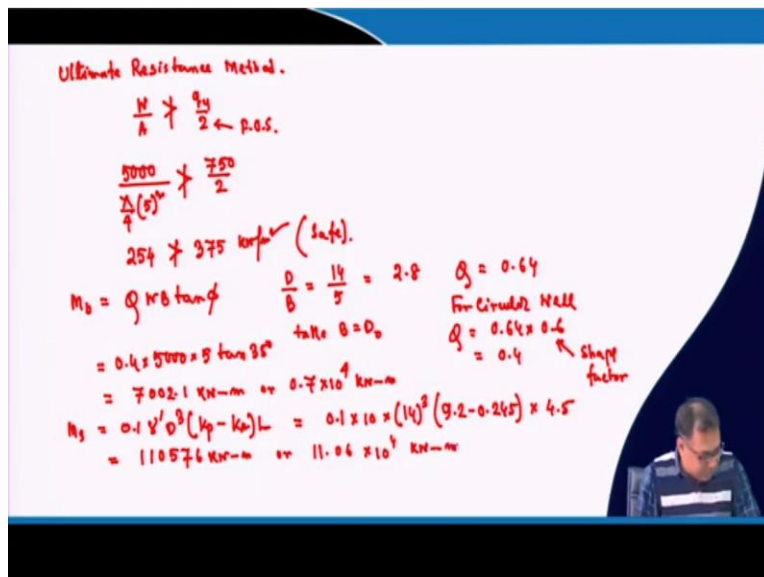 Ultimate Resistance Method.
W/A ≯ qu/2 ← F.O.S.
5000 / π/4 (5)² ≯ 750/2
254 ≯ 375 kN/m² ✓ (Safe).
Mb = Q W B tanϕ
D/B = 14/5 = 2.8
Q = 0.64
For Circular Well
take B = D₀
Q = 0.64 x 0.6
= 0.4
Shape factor
= 0.4 x 5000 x 5 tan 35°
= 7002.1 KN-m or 0.7 x 10⁴ KN-m
Ms = 0.1 γ' D³ (Kp - KA) L = 0.1 x 10 x (14)³ (9.2 - 0.245) x 4.5
= 110576 KN-m or 11.06 x 10⁴ KN-m